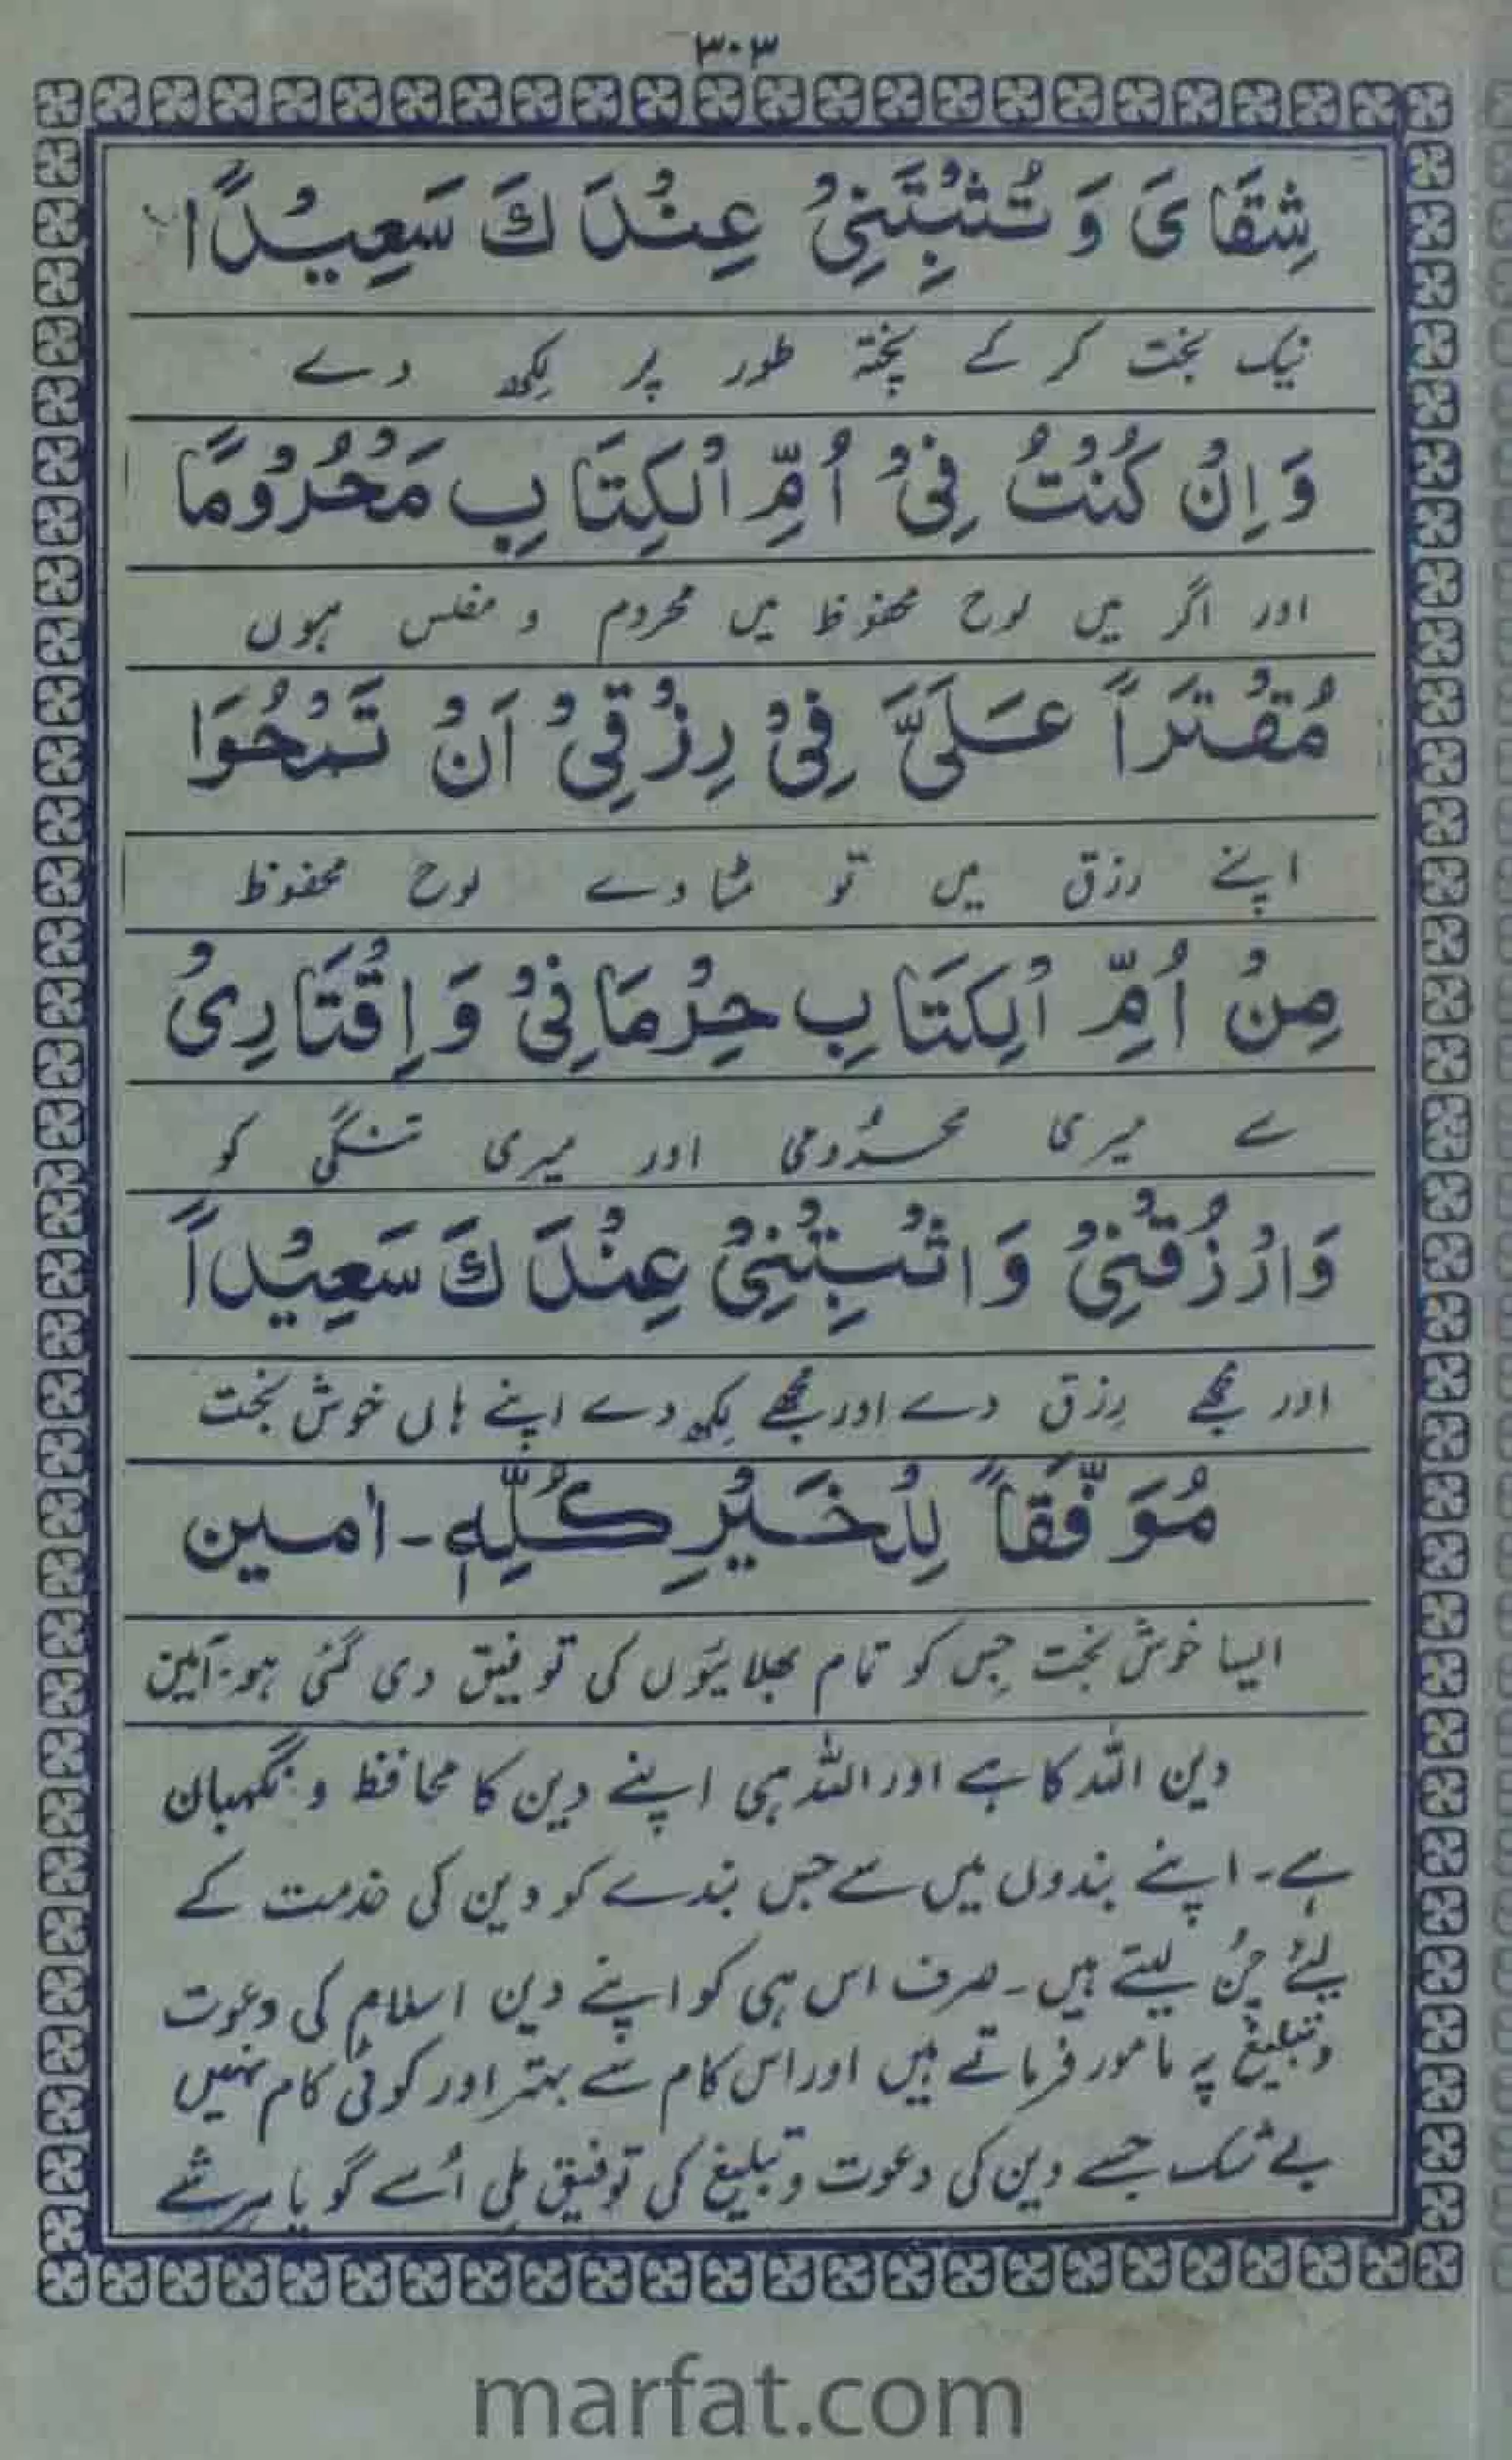 ۳۰۳
شِقَائ وَ تُثْبِتَنِیْ عِنْدَكَ سَعِیْدًا
نیک بخت کر کے پختہ طور پر لکھ دے
وَ اِنْ كُنْتُ فِیْ اُمِّ الْكِتَابِ مَحْرُوْمًا
اور اگر میں لوح محفوظ میں محروم و مفلس ہوں
مُقْتَرَاً عَلَیَّ فِیْ رِزْقِیْ اَنْ تَمْحُوَا
اپنے رزق میں تو مٹا دے لوح محفوظ
مِنْ اُمِّ الْكِتَابِ حِرْمَانِیْ وَ اِقْتَارِیْ
سے میری محرُومی اور میری تنگی کو
وَارْزُقْنِیْ وَاثْبِتْنِیْ عِنْدَكَ سَعِیْداً
اور مجھے رزق دے اور مجھے لکھ دے اپنے ہاں خوش بخت
مُوَفَّقاً لِلْخَیْرِ كُلِّهٖ۔ اٰمین
ایسا خوش بخت جِس کو تمام بھلائیوں کی توفیق دی گئی ہو۔ آمین
دین اللہ کا ہے اور اللہ ہی اپنے دین کا محافظ و نگہبان
ہے۔ اپنے بندوں میں سے جس بندے کو دین کی خدمت کے
لئے چُن لیتے ہیں۔ صرف اس ہی کو اپنے دین اسلام کی دعوت
و تبلیغ پہ مامور فرماتے ہیں اور اس کام سے بہتر اور کوئی کام نہیں
بے شک جسے دین کی دعوت و تبلیغ کی توفیق ملی اُسے گویا ہر شے
marfat.com